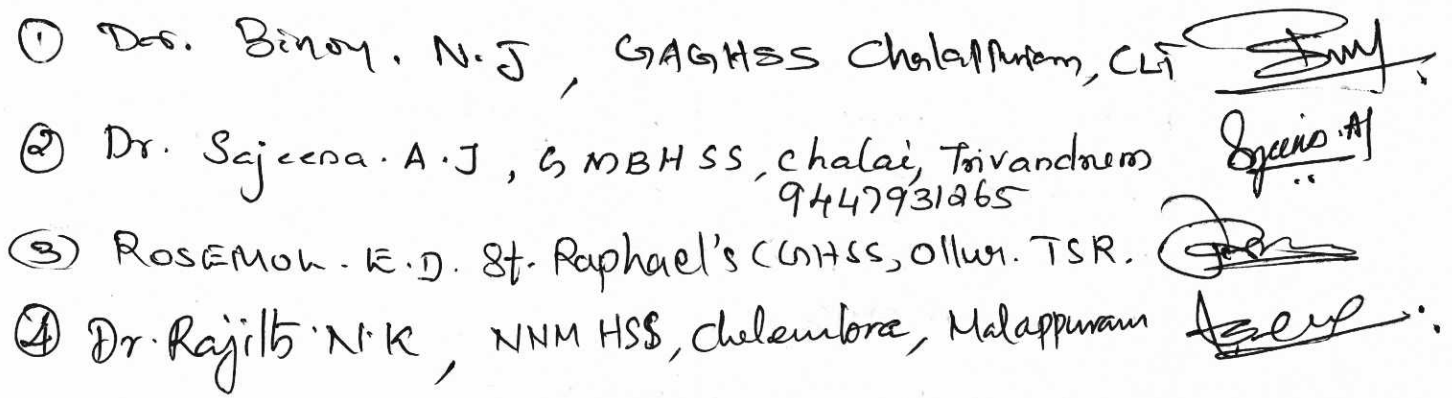 ① Dr. Binoy. N.J, GAGHSS Chalappuram, CLT
② Dr. Sajeena. A.J, GMBHSS, chalai, Trivandrum
9447931265
③ ROSEMOL. K.D. St. Raphael's CGHSS, Ollur. TSR.
④ Dr. Rajith N.K, NNM HSS, chelembra, Malappuram